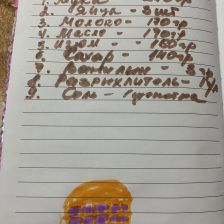 1. Мука - гр
2. Яйца - 3 шт
3. Молоко - 170 гр
4. Масло - 170 гр
5. Изюм - 160 гр
6. Сахар - 140 гр
7. Ванилин - гр
8. Разрыхлитель -
9. Соль - щепотка